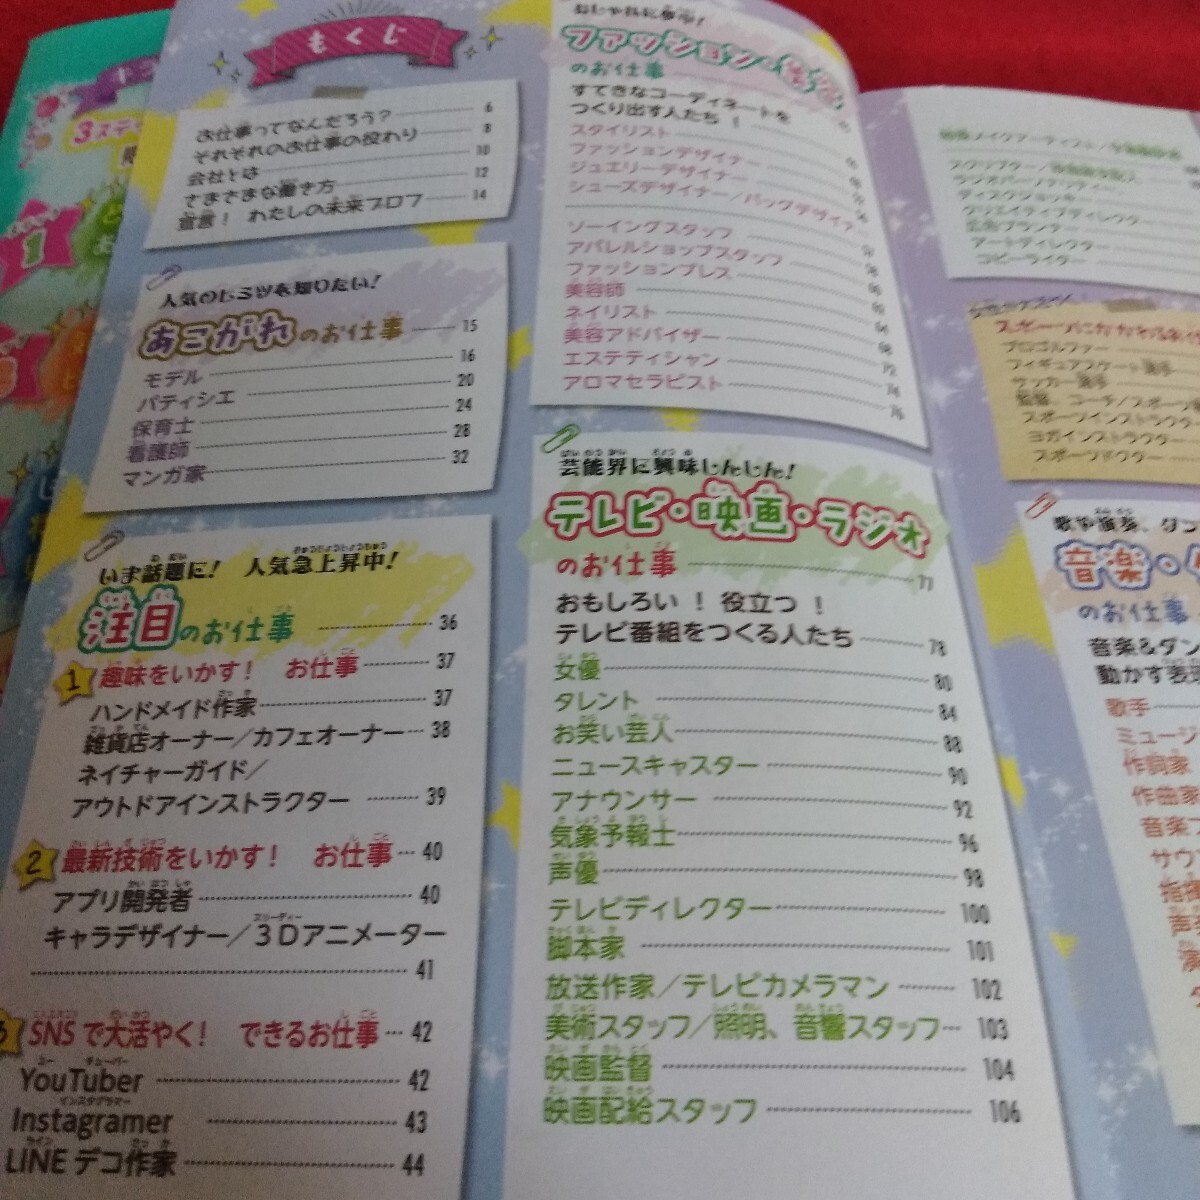 もくじ
お仕事ってなんだろう? 6
それぞれのお仕事の役わり 8
会社とは 10
さまざまな働き方 12
宣言! わたしの未来プロフ 14
人気のヒミツを知りたい!
あこがれのお仕事 15
モデル 16
パティシエ 20
保育士 24
看護師 28
マンガ家 32
いま話題に! 人気急上昇中!
注目のお仕事 36
1 趣味をいかす! お仕事 37
ハンドメイド作家 37
雑貨店オーナー/カフェオーナー 38
ネイチャーガイド/
アウトドアインストラクター 39
2 最新技術をいかす! お仕事 40
アプリ開発者 40
キャラデザイナー/3Dアニメーター
41
3 SNSで大活やく! できるお仕事 42
YouTuber 42
Instagramer 43
LINEデコ作家 44
おしゃれに夢中!
ファッション・
のお仕事
すてきなコーディネートを
つくり出す人たち!
スタイリスト
ファッションデザイナー
ジュエリーデザイナー
シューズデザイナー/バッグデザイナー
ソーイングスタッフ
アパレルショップスタッフ
ファッションプレス
美容師
ネイリスト
美容アドバイザー
エステティシャン 74
アロマセラピスト 76
芸能界に興味しんしん!
テレビ・映画・ラジオ
のお仕事 77
おもしろい! 役立つ!
テレビ番組をつくる人たち 78
女優 80
タレント 84
お笑い芸人 88
ニュースキャスター 90
アナウンサー 92
気象予報士 96
声優 98
テレビディレクター 100
脚本家 101
放送作家/テレビカメラマン 102
美術スタッフ/照明、音響スタッフ 103
映画監督 104
映画配給スタッフ 106
ディスクジョッキー
クリエイティブディレクター
広告プランナー
アートディレクター
コピーライター
スポーツにかかわるお仕
プロゴルファー
フィギュアスケート選手
サッカー選手
監督、コーチ/スポーツ
スポーツインストラクター
ヨガインストラクター
スポーツドクター
歌や演奏、ダン
音楽・
のお仕事
音楽&ダン
動かす表現
歌手
ミュージ
作詞家
作曲家
音楽
サウ
指揮